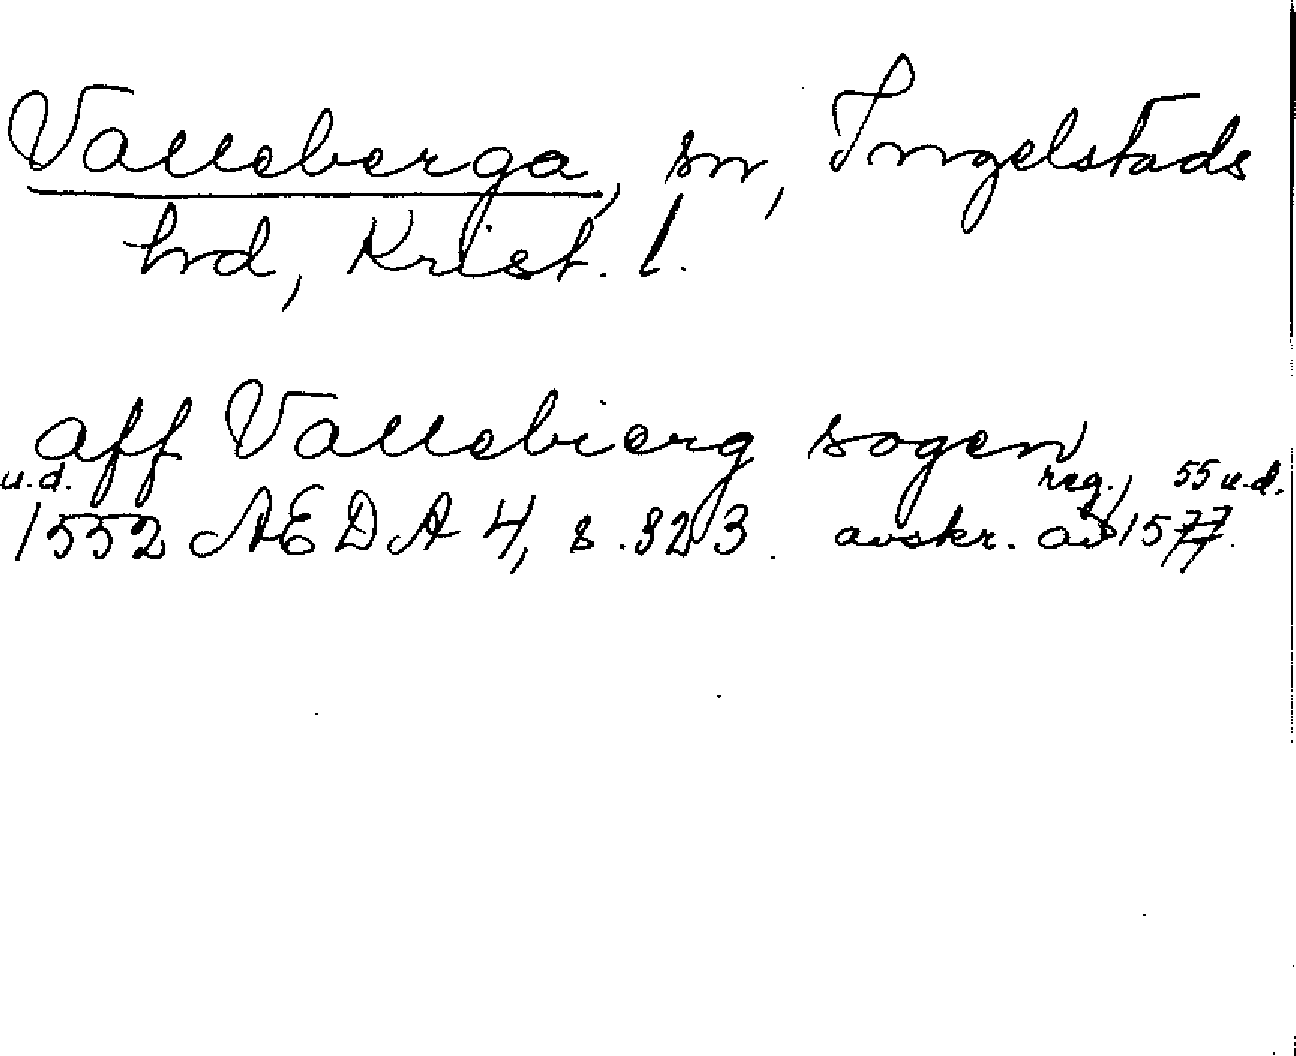 Valleberga, sn, Ingelstads
hrd, Krist. l.
aff Vallebierg sogen
u.d. reg., 55 u.d.
1552 AEDA 4, s. 323. avskr. av 1577.